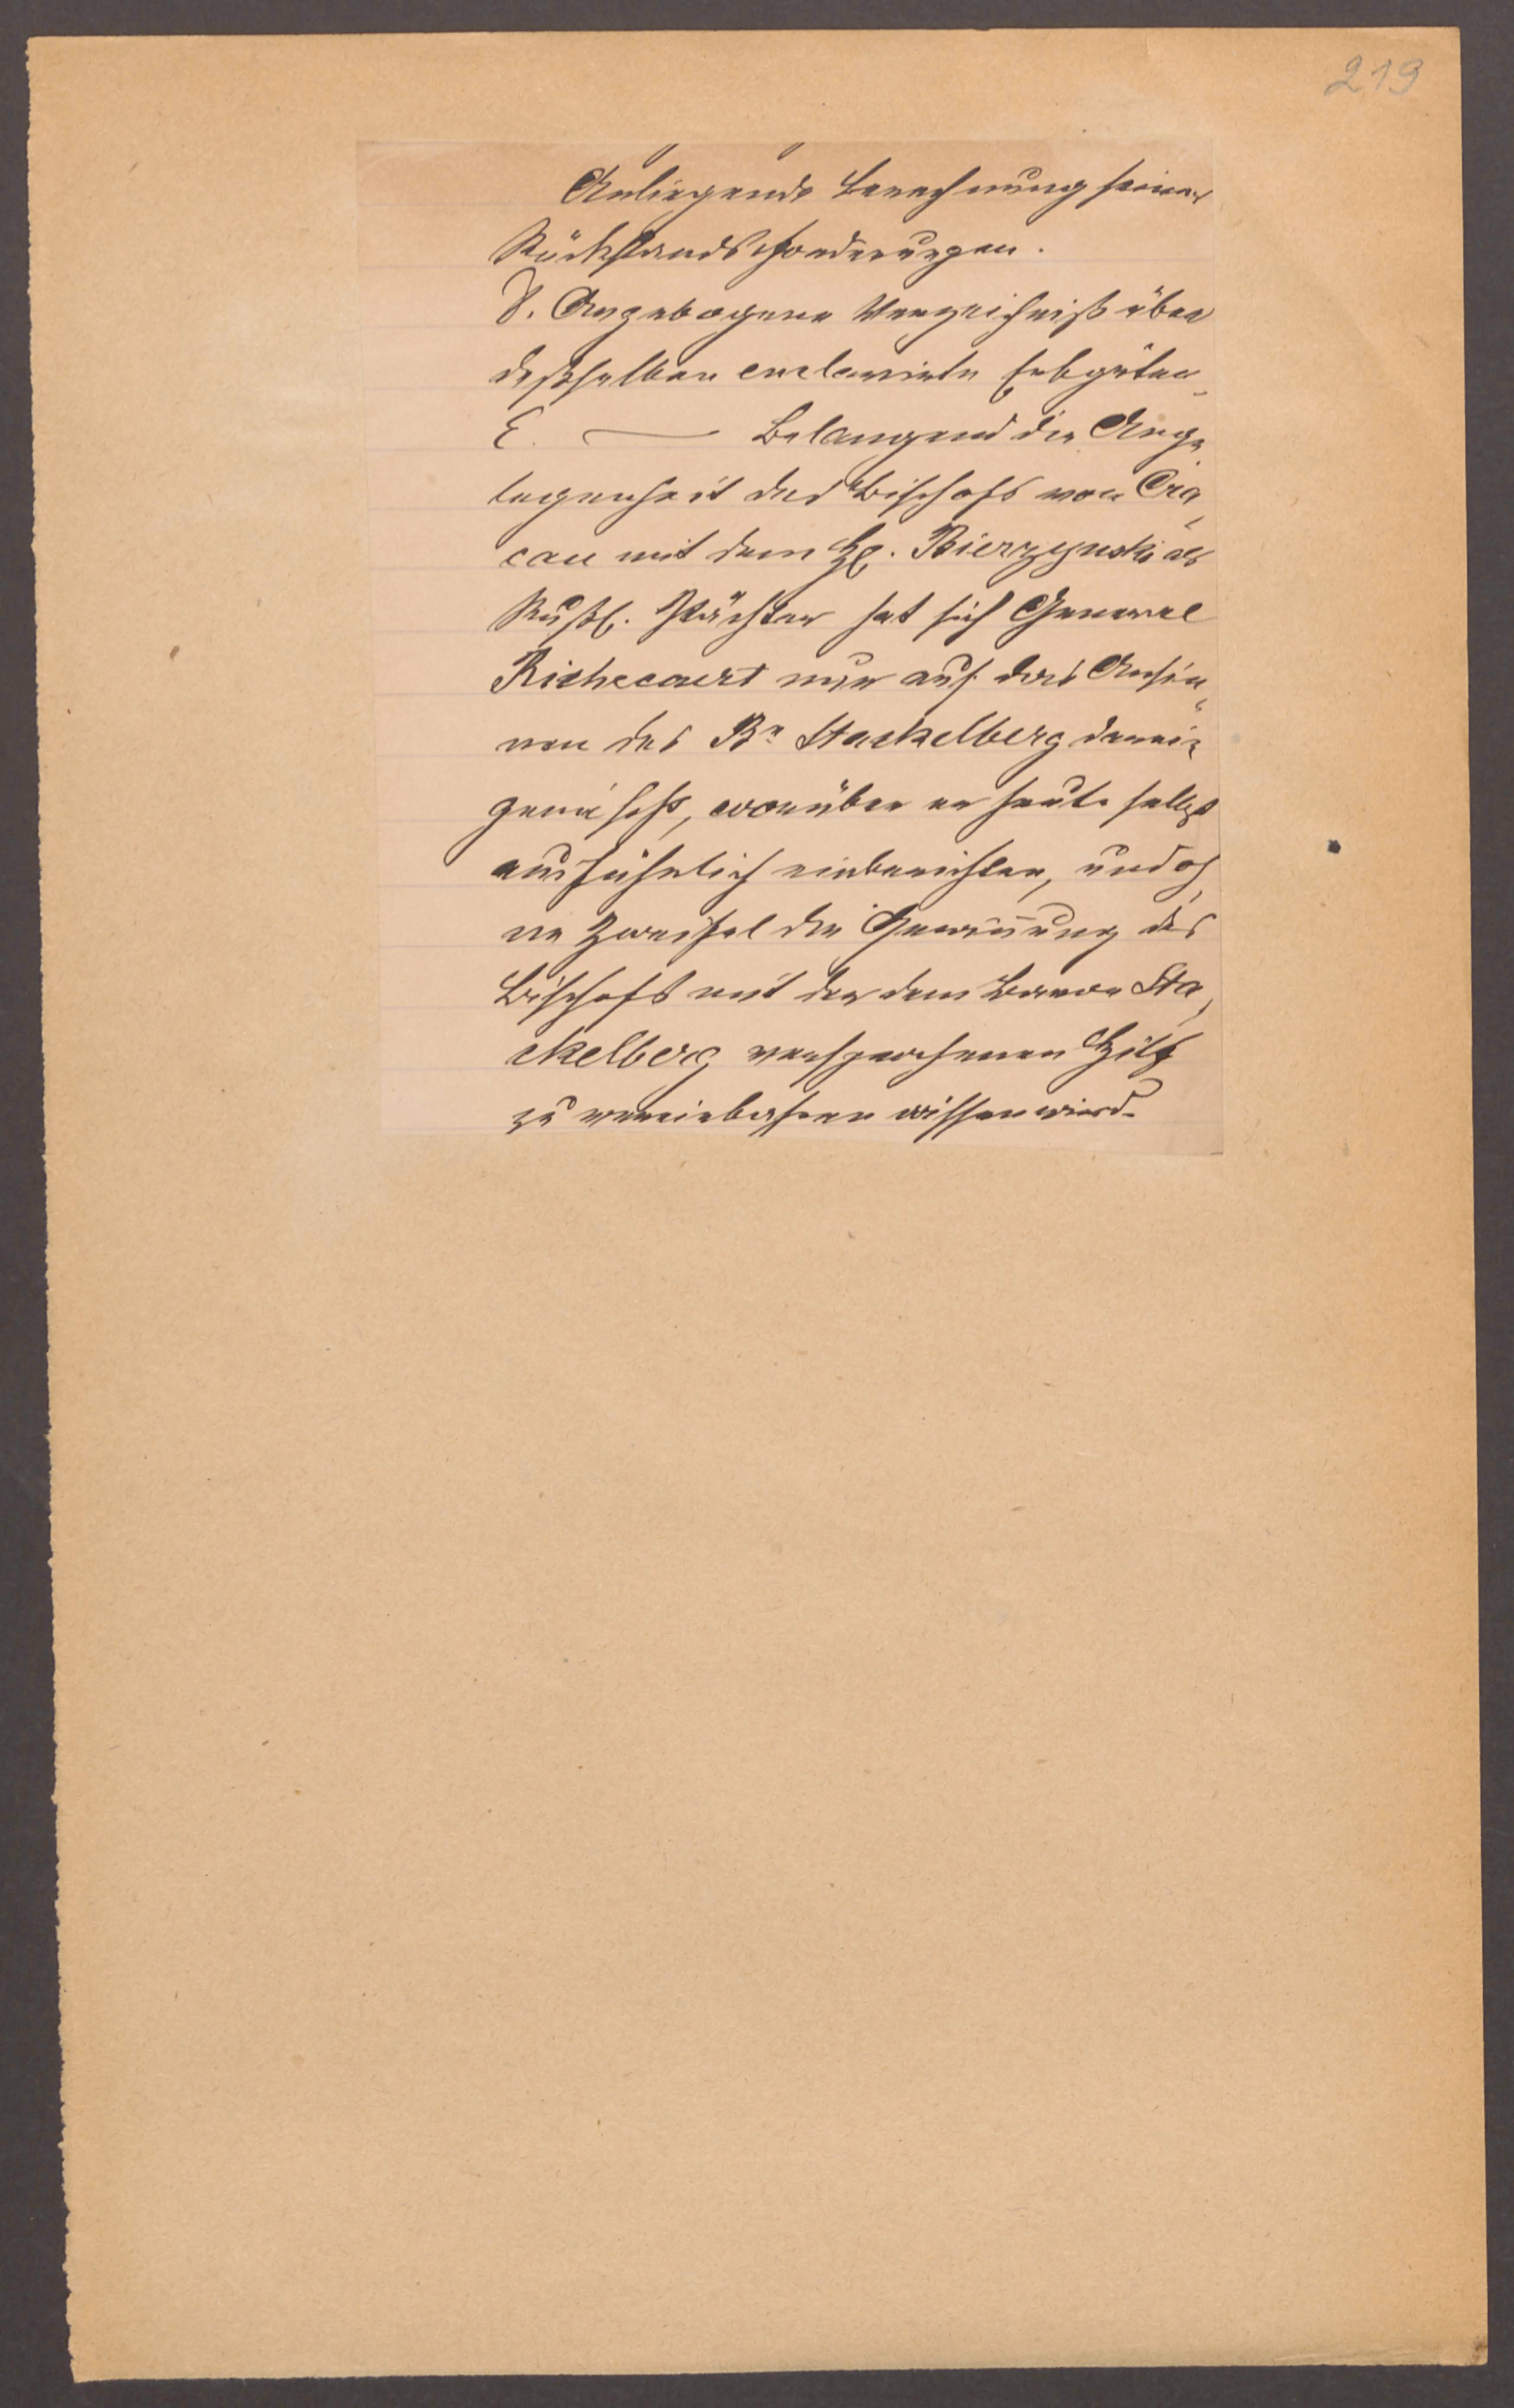 219
Anliegende Berechnung seiner
Rückstandsforderungen.
D. Angebogene Verzeichniß über
desselben enclavirte Erbgüter
E. — Belangend die Ange
legenheit des Bischofs von Cra
cau mit dem H. Bierzynski als
Russ. Pächter hat sich General
Richecourt nur auf das Ansin
nen des Bn Stackelberg darein
gemischt, worüber er heute selbst
ausführlich einberichten, und oh
ne Zweifel die Gewinnung des
Bischofs mit der dem Baron Sta
ckelberg versprochenen Hilf
zu vereinbahren wissen wird.